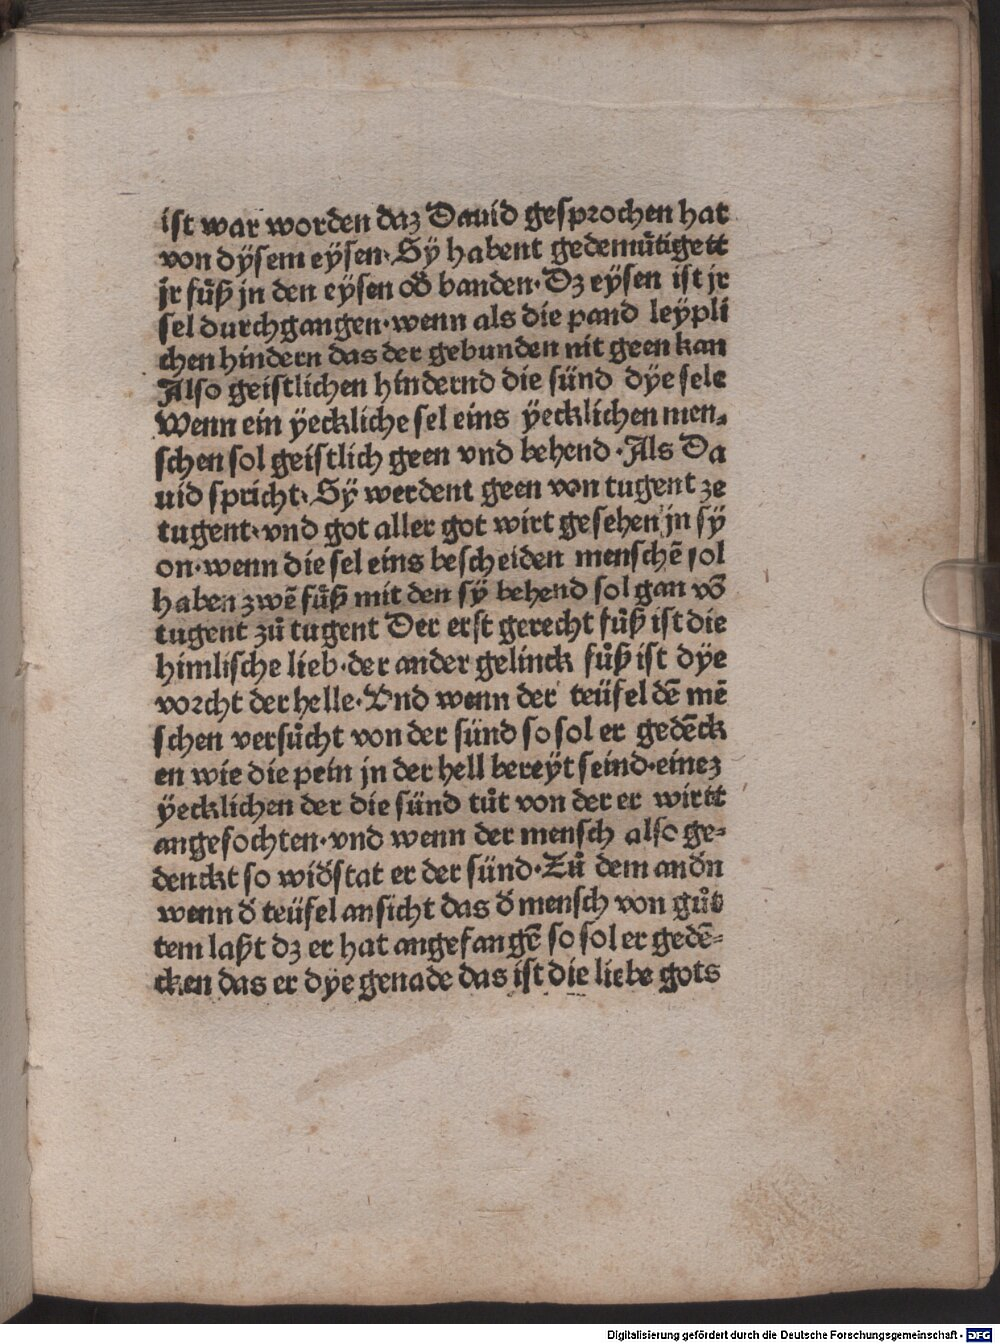 ist war worden daz Dauid gesprochen hat
von dÿsem eÿsen· Sÿ habent gedemuͤtigett
jr fuͤß jn den eÿsen od̄ banden· Dz eÿsen ist jr
sel durchgangen· wenn als die pand leÿpli
chen hindern das der gebunden nit geen kan
Also geistlichen hindernd die sünd dÿe sele
Wenn ein ÿeckliche sel eins ÿecklichen men⸗
schen sol geistlich geen vnd behend · Als Da
uid spricht· Sÿ werdent geen von tugent ze
tugent· vnd got aller got wirt gesehen jn sÿ
on· wenn die sel eins bescheiden menschē sol
haben zwē fuͤß mit den sÿ behend sol gan vō
tugent zuͦ tugent Der erst gerecht fuͦß ist die
himlische lieb· der ander gelinck fuͦß ist dÿe
vorcht der helle· Vnd wenn der teüfel dē mē
schen versuͦcht von der sünd so sol er gedēck
en wie die pein jn der hell bereÿt seind· einez
ÿecklichen der die sünd tuͦt von der er wirtt
angefochten· vnd wenn der mensch also ge⸗
denckt so wid̄stat er der sünd· Zuͦ dem andn̄
wenn d̄ teüfel ansicht das d̄ mensch von guͦt
tem laßt dz er hat angefangē so sol er gedē⸗
cken das er dÿe genade das ist die liebe gots
Digitalisierung gefördert durch die Deutsche Forschungsgemeinschaft - DFG